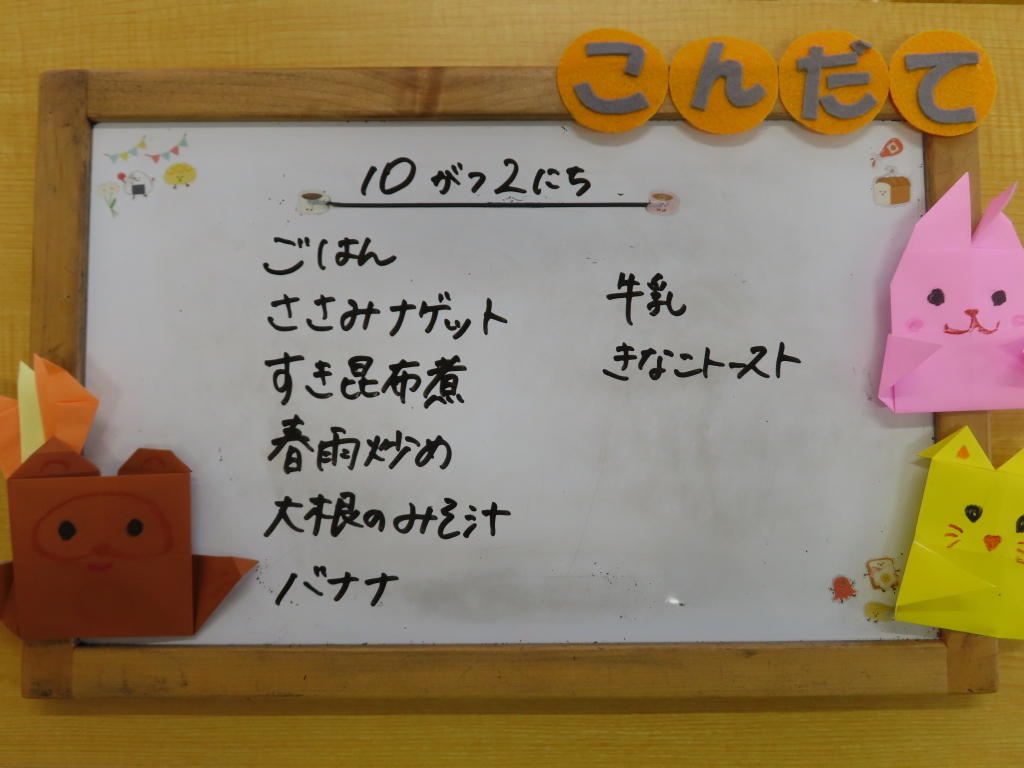 こんだて
10がつ2にち
ごはん
ささみナゲット
すき昆布煮
春雨炒め
大根のみそ汁
バナナ
牛乳
きなこトースト